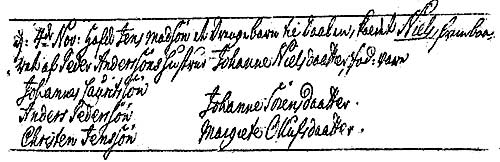 d: 4de Nov: hafde Jens Madsøn et Drengebarn til Daaben, kaldt Niels, frembaa-
ret af Peder Anderssøns Hustrue Johanne Nielsdaatter, fad: vare
Johannes Lauridsøn
Anders Pedersøn
Christen Jenssøn
Johanne Sørensdaatter.
Margrete C. Nielsdaatter.